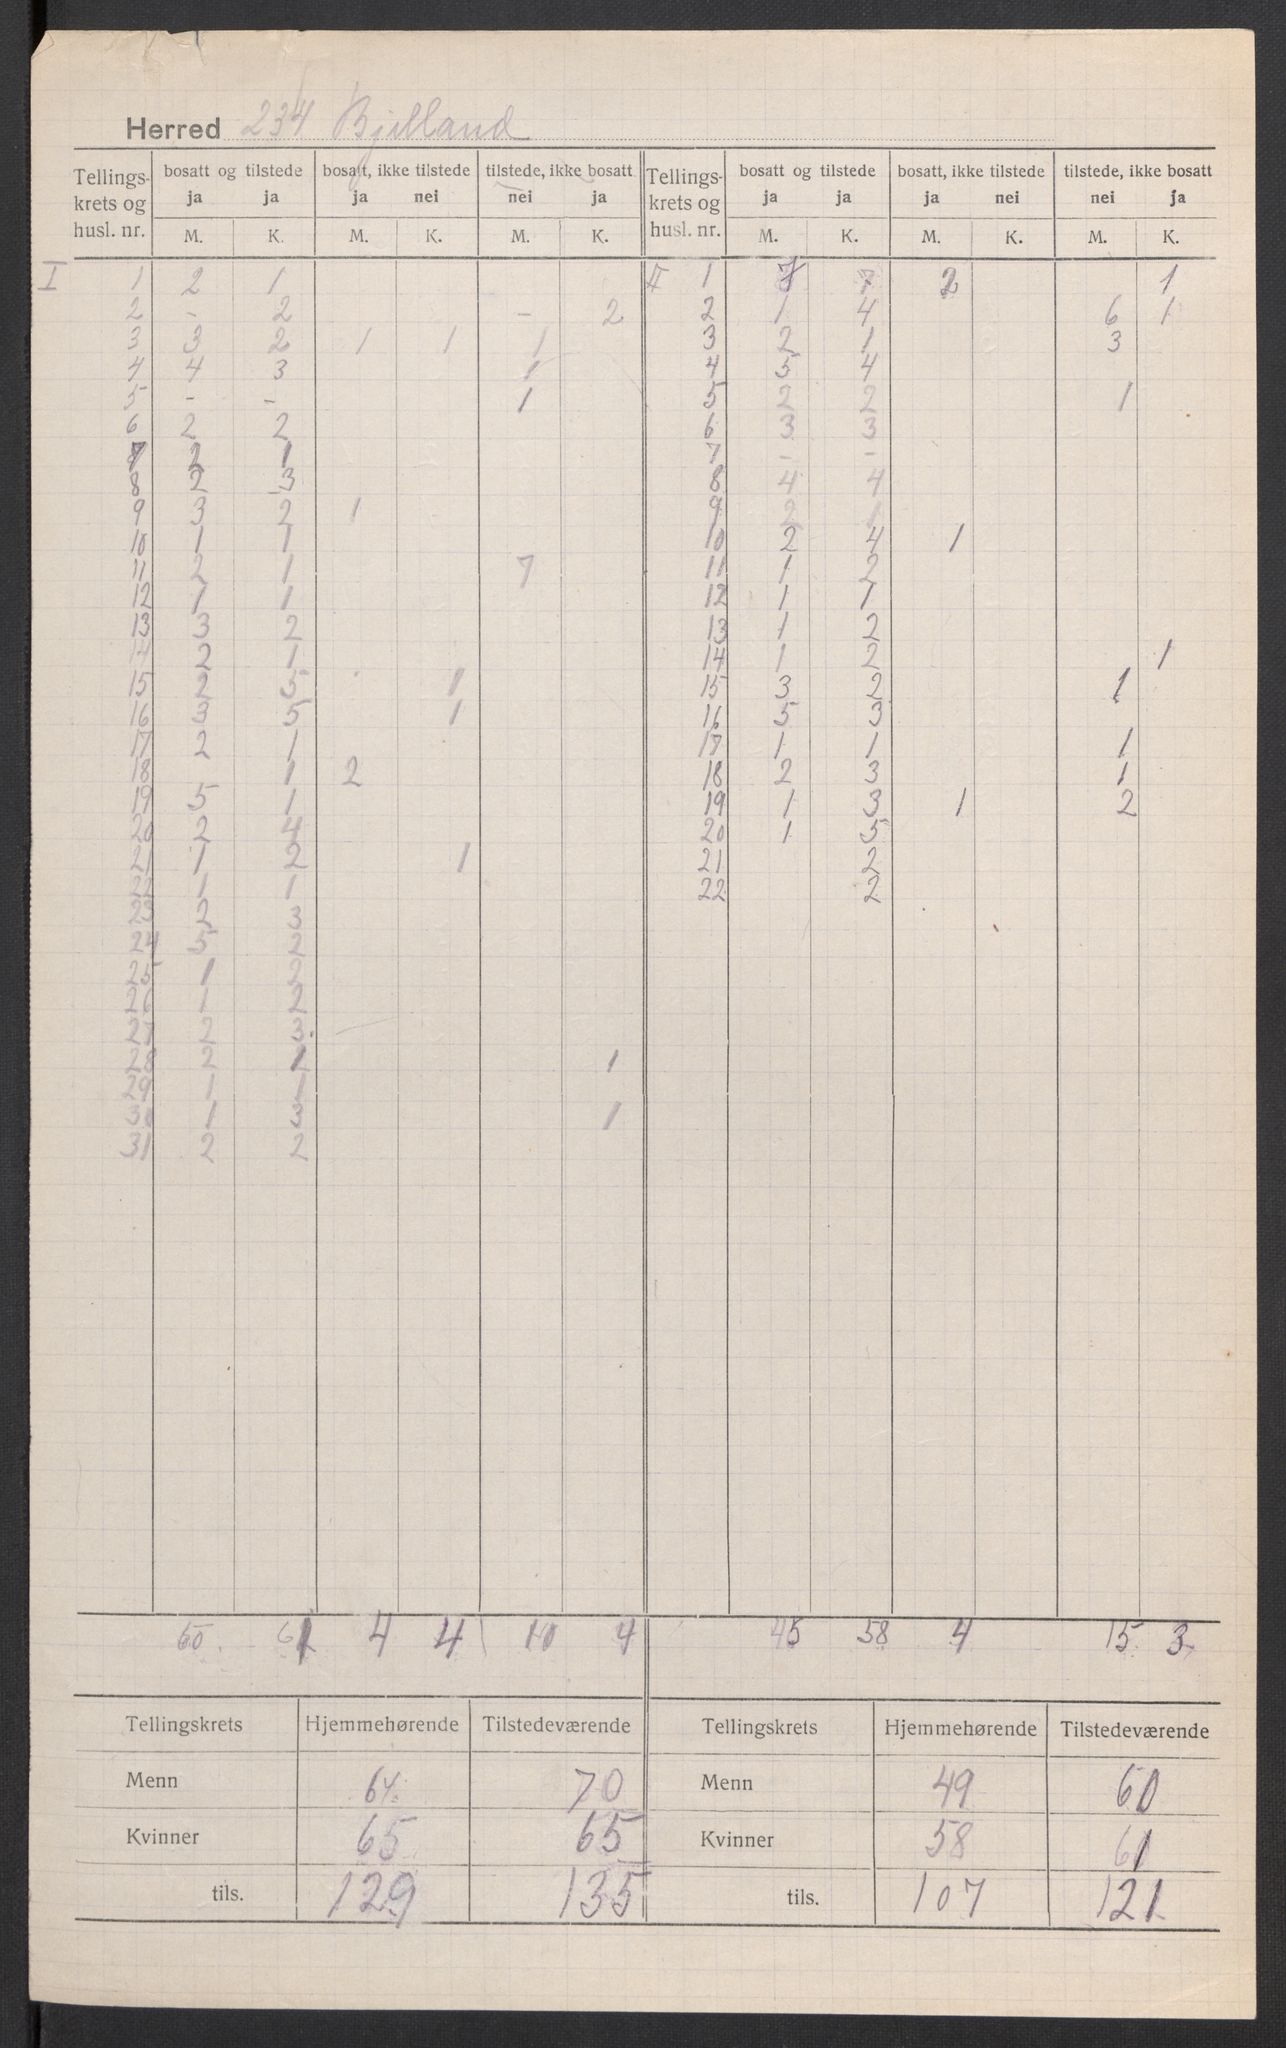 Herred 234 Bjelland
Tellings- krets og husl. nr. | bosatt og tilstede ja ja | bosatt, ikke tilstede ja nei | tilstede, ikke bosatt nei ja | Tellings- krets og husl. nr. | bosatt og tilstede ja ja | bosatt, ikke tilstede ja nei | tilstede, ikke bosatt nei ja
M. K. M. K. M. K. M. K. M. K. M. K.
I 1 2 1 | II 1 7 7 2 1
2 - 2 - 2 | 2 1 4 6 1
3 3 2 1 1 1 | 3 2 1 3
4 4 3 1 | 4 5 4
5 - - 1 | 5 2 2 1
6 2 2 | 6 3 3
7 2 1 | 7 - -
8 2 3 | 8 4 4
9 3 2 1 | 9 2 1
10 1 1 | 10 2 4 1
11 2 1 7 | 11 1 2
12 1 1 | 12 1 1
13 3 2 | 13 1 2
14 2 1 | 14 1 2 1
15 2 3 1 | 15 3 2 1
16 3 5 1 | 16 5 3 1
17 2 1 | 17 1 1 1
18 1 2 | 18 2 3 1
19 5 1 | 19 1 3 1 2
20 2 4 | 20 1 5
21 1 2 1 | 21 2
22 1 1 | 22 2
23 2 3
24 5 2
25 1 2
26 1 2
27 2 3
28 2 1
29 1 1
30 1 3 1
31 2 2
60 61 4 4 10 4 | 45 58 4 15 3
Tellingskrets | Hjemmehørende | Tilstedeværende | Tellingskrets | Hjemmehørende | Tilstedeværende
Menn 64 70 | Menn 49 60
Kvinner 65 65 | Kvinner 58 61
tils. 129 135 | tils. 107 121